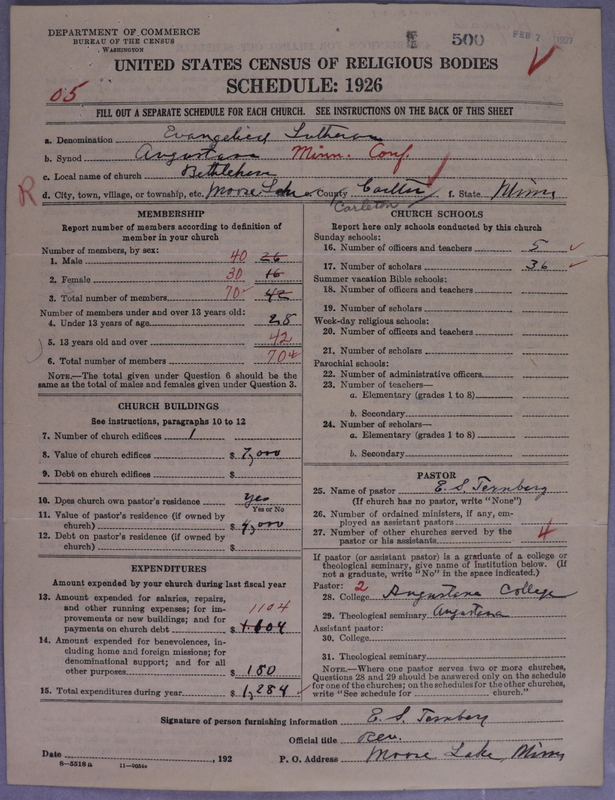 DEPARTMENT OF COMMERCE
BUREAU OF THE CENSUS
WASHINGTON
500
FEB 7 1927
UNITED STATES CENSUS OF RELIGIOUS BODIES
SCHEDULE: 1926
05
FILL OUT A SEPARATE SCHEDULE FOR EACH CHURCH. SEE INSTRUCTIONS ON THE BACK OF THIS SHEET
a. Denomination Evangelical Lutheran
b. Synod Augustana Minn. Conf.
c. Local name of church Bethlehem
R d. City, town, village, or township, etc. Moose Lake e. County Carlton f. State Minn
Carleton
MEMBERSHIP
Report number of members according to definition of
member in your church
Number of members, by sex:
1. Male 40 26
2. Female 30 16
3. Total number of members 70 42
Number of members under and over 13 years old:
4. Under 13 years of age 28
5. 13 years old and over 42
6. Total number of members 70
NOTE.—The total given under Question 6 should be the
same as the total of males and females given under Question 3.
CHURCH BUILDINGS
See instructions, paragraphs 10 to 12
7. Number of church edifices 1
8. Value of church edifices $ 7,000
9. Debt on church edifices $
10. Does church own pastor's residence yes
Yes or No
11. Value of pastor's residence (if owned by
church) $ 4,000
12. Debt on pastor's residence (if owned by
church) $
EXPENDITURES
Amount expended by your church during last fiscal year
13. Amount expended for salaries, repairs,
and other running expenses; for im-
provements or new buildings; and for
payments on church debt $ 1104
1.604
14. Amount expended for benevolences, in-
cluding home and foreign missions; for
denominational support; and for all
other purposes $ 180
15. Total expenditures during year $ 1,284
CHURCH SCHOOLS
Report here only schools conducted by this church
Sunday schools:
16. Number of officers and teachers 5
17. Number of scholars 36
Summer vacation Bible schools:
18. Number of officers and teachers
19. Number of scholars
Week-day religious schools:
20. Number of officers and teachers
21. Number of scholars
Parochial schools:
22. Number of administrative officers
23. Number of teachers—
a. Elementary (grades 1 to 8)
b. Secondary
24. Number of scholars—
a. Elementary (grades 1 to 8)
b. Secondary
PASTOR
25. Name of pastor E. S. Ternberg
(If church has no pastor, write "None")
26. Number of ordained ministers, if any, em-
ployed as assistant pastors
27. Number of other churches served by the
pastor or his assistants 4
If pastor (or assistant pastor) is a graduate of a college or
theological seminary, give name of institution below. (If
not a graduate, write "No" in the space indicated.)
Pastor: 2
28. College Augustana College
29. Theological seminary Augustana
Assistant pastor:
30. College
31. Theological seminary
NOTE.—Where one pastor serves two or more churches,
Questions 28 and 29 should be answered only on the schedule
for one of the churches; on the schedules for the other churches,
write "See schedule for church."
Signature of person furnishing information E. S. Ternberg
Official title Rev.
Date , 192 P. O. Address Moose Lake, Minn
8—5518 a